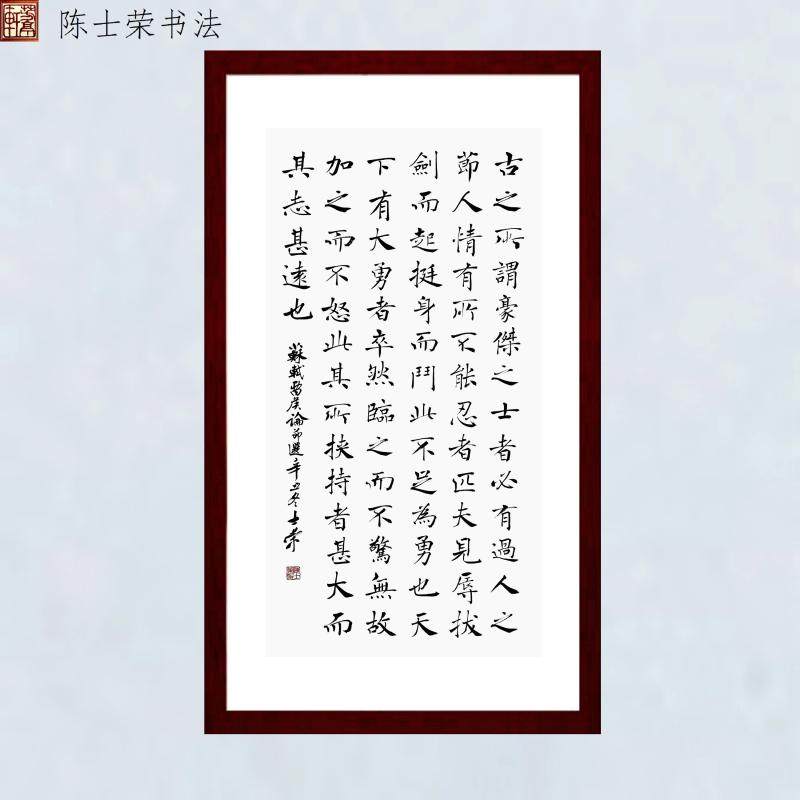 陈士荣书法
古之所謂豪傑之士者必有過人之
節人情有所不能忍者匹夫見辱拔
劍而起挺身而鬥此不足為勇也天
下有大勇者卒然臨之而不驚無故
加之而不怒此其所挾持者甚大而
其志甚遠也
蘇軾留侯論節選辛丑冬士榮